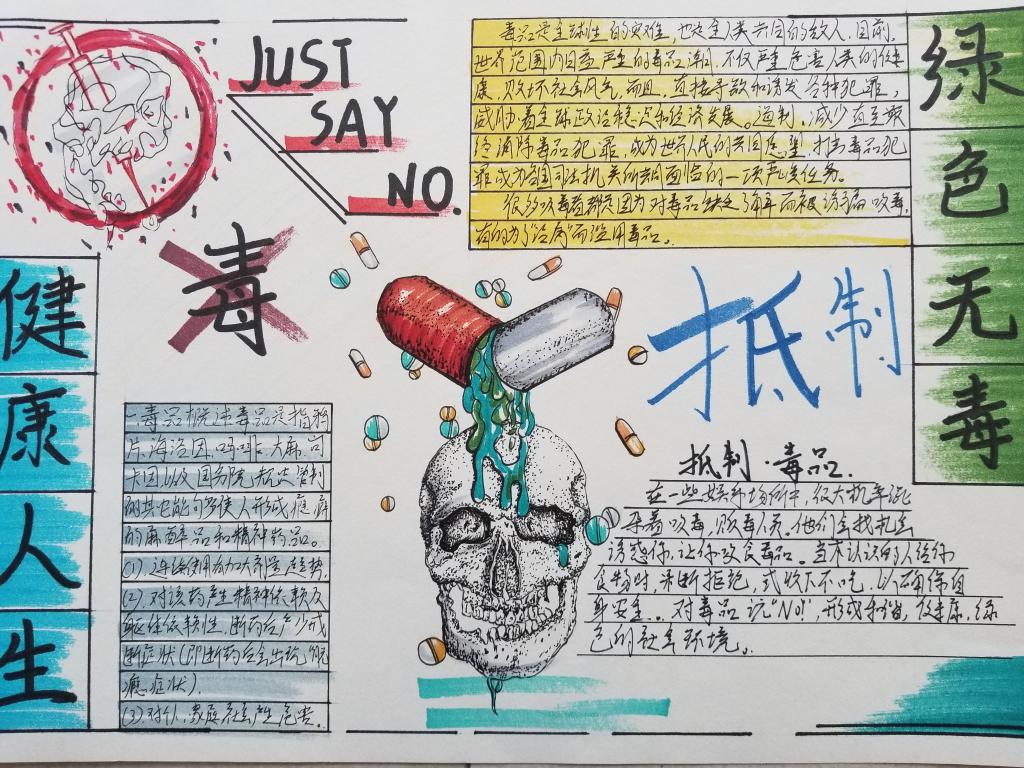 JUST
SAY
NO.
毒品是全球性的灾难，也是全人类共同的敌人，目前，
世界范围内日益严重的毒品潮，不仅严重危害人类的健
康，败坏社会风气，而且，直接导致和诱发各种犯罪，
威胁着全球政治稳定和经济发展。遏制，减少直至最
终消除毒品犯罪，成为世界人民的共同愿望，打击毒品犯
罪成为各国司法机关所共同面临的一项严峻任务。
很多吸毒者都因为对毒品缺乏了解而被诱骗吸毒，
有的为了治病而滥用毒品。
绿
色
无
毒
健
康
人
生
毒
抵制
一、毒品概述毒品是指鸦
片、海洛因、吗啡、大麻、可
卡因以及国务院规定管制
的其它能够使人形成瘾癖
的麻醉品和精神药品。
(1) 连续使用有加大剂量趋势
(2) 对该药产生精神依赖及
躯体依赖性，断药后产生戒
断症状(即断药后会出现
瘾症状)。
(3) 对个人，家庭社会产生危害。
抵制·毒品.
在一些娱乐场所中，很大机率混
杂着吸毒，贩毒人员。他们会找机会
诱惑你，让你吸食毒品。当不认识的人给你
食物时，果断拒绝，或收下不吃，以确保自
身安全... 对毒品说"No!"，形成和谐，健康，绿
色的社会环境。